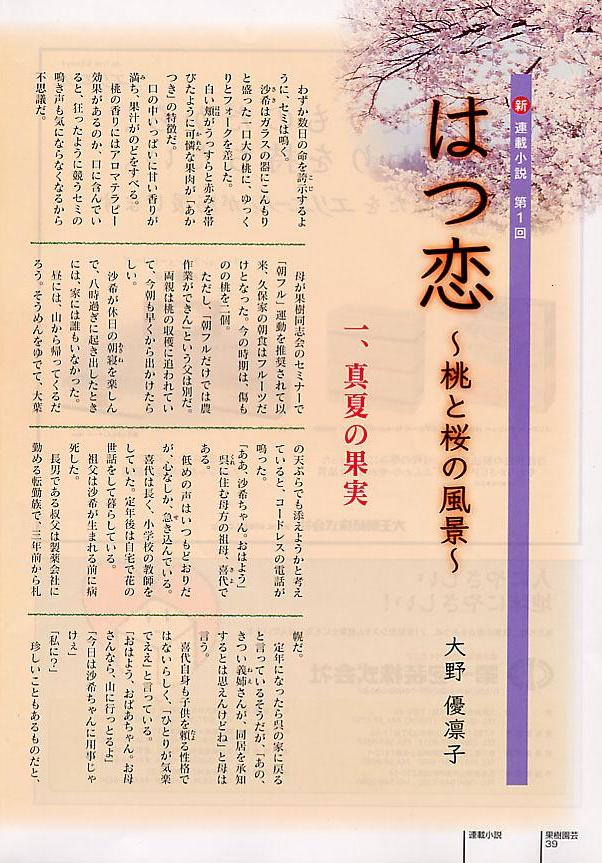 新 連載小説 第1回
はつ恋
～桃と桜の風景～
大野 優凛子
一、真夏の果実
わずか数日の命を誇示するよ
うに、セミは鳴く。
沙希はガラスの器にこんもり
と盛った一口大の桃に、ゆっく
りとフォークを差した。
白い頬がうっすらと赤みを帯
びたように可憐な果肉が「あか
つき」の特徴だ。
口の中いっぱいに甘い香りが
満ち、果汁がのどをすべる。
桃の香りにはアロマテラピー
効果があるのか、口に含んでい
ると、狂ったように競うセミの
鳴き声も気にならなくなるから
不思議だ。
母が果樹同志会のセミナーで
「朝フル」運動を推奨されて以
来、久保家の朝食はフルーツだ
けとなった。今の時期は、傷も
のの桃を二個。
ただし、「朝フルだけでは農
作業ができん」という父は別だ。
両親は桃の収穫に追われてい
て、今朝も早くから出かけたら
しい。
沙希が休日の朝寝を楽しん
で、八時過ぎに起き出したとき
には、家には誰もいなかった。
昼には、山から帰ってくるだ
ろう。そうめんをゆでて、大葉
の天ぷらでも添えようかと考え
ていると、コードレスの電話が
鳴った。
「ああ、沙希ちゃん。おはよう」
呉に住む母方の祖母、喜代で
ある。
低めの声はいつもどおりだ
が、心なしか、急き込んでいる。
喜代は長く、小学校の教師を
していた。定年後は自宅で花の
世話をして暮らしている。
祖父は沙希が生まれる前に病
死した。
長男である叔父は製薬会社に
勤める転勤族で、三年前から札
幌だ。
定年になったら呉の家に戻る
と言っているそうだが、「あの、
きつい義姉さんが、同居を承知
するとは思えんけどね」と母は
言う。
喜代自身も子供を頼る性格で
はないらしく、「ひとりが気楽
でええ」と言っている。
「おはよう、おばあちゃん。お母
さんなら、山に行っとるよ」
「今日は沙希ちゃんに用事じゃ
けぇ」
「私に？」
珍しいこともあるものだと、
連載小説
果樹園芸
39